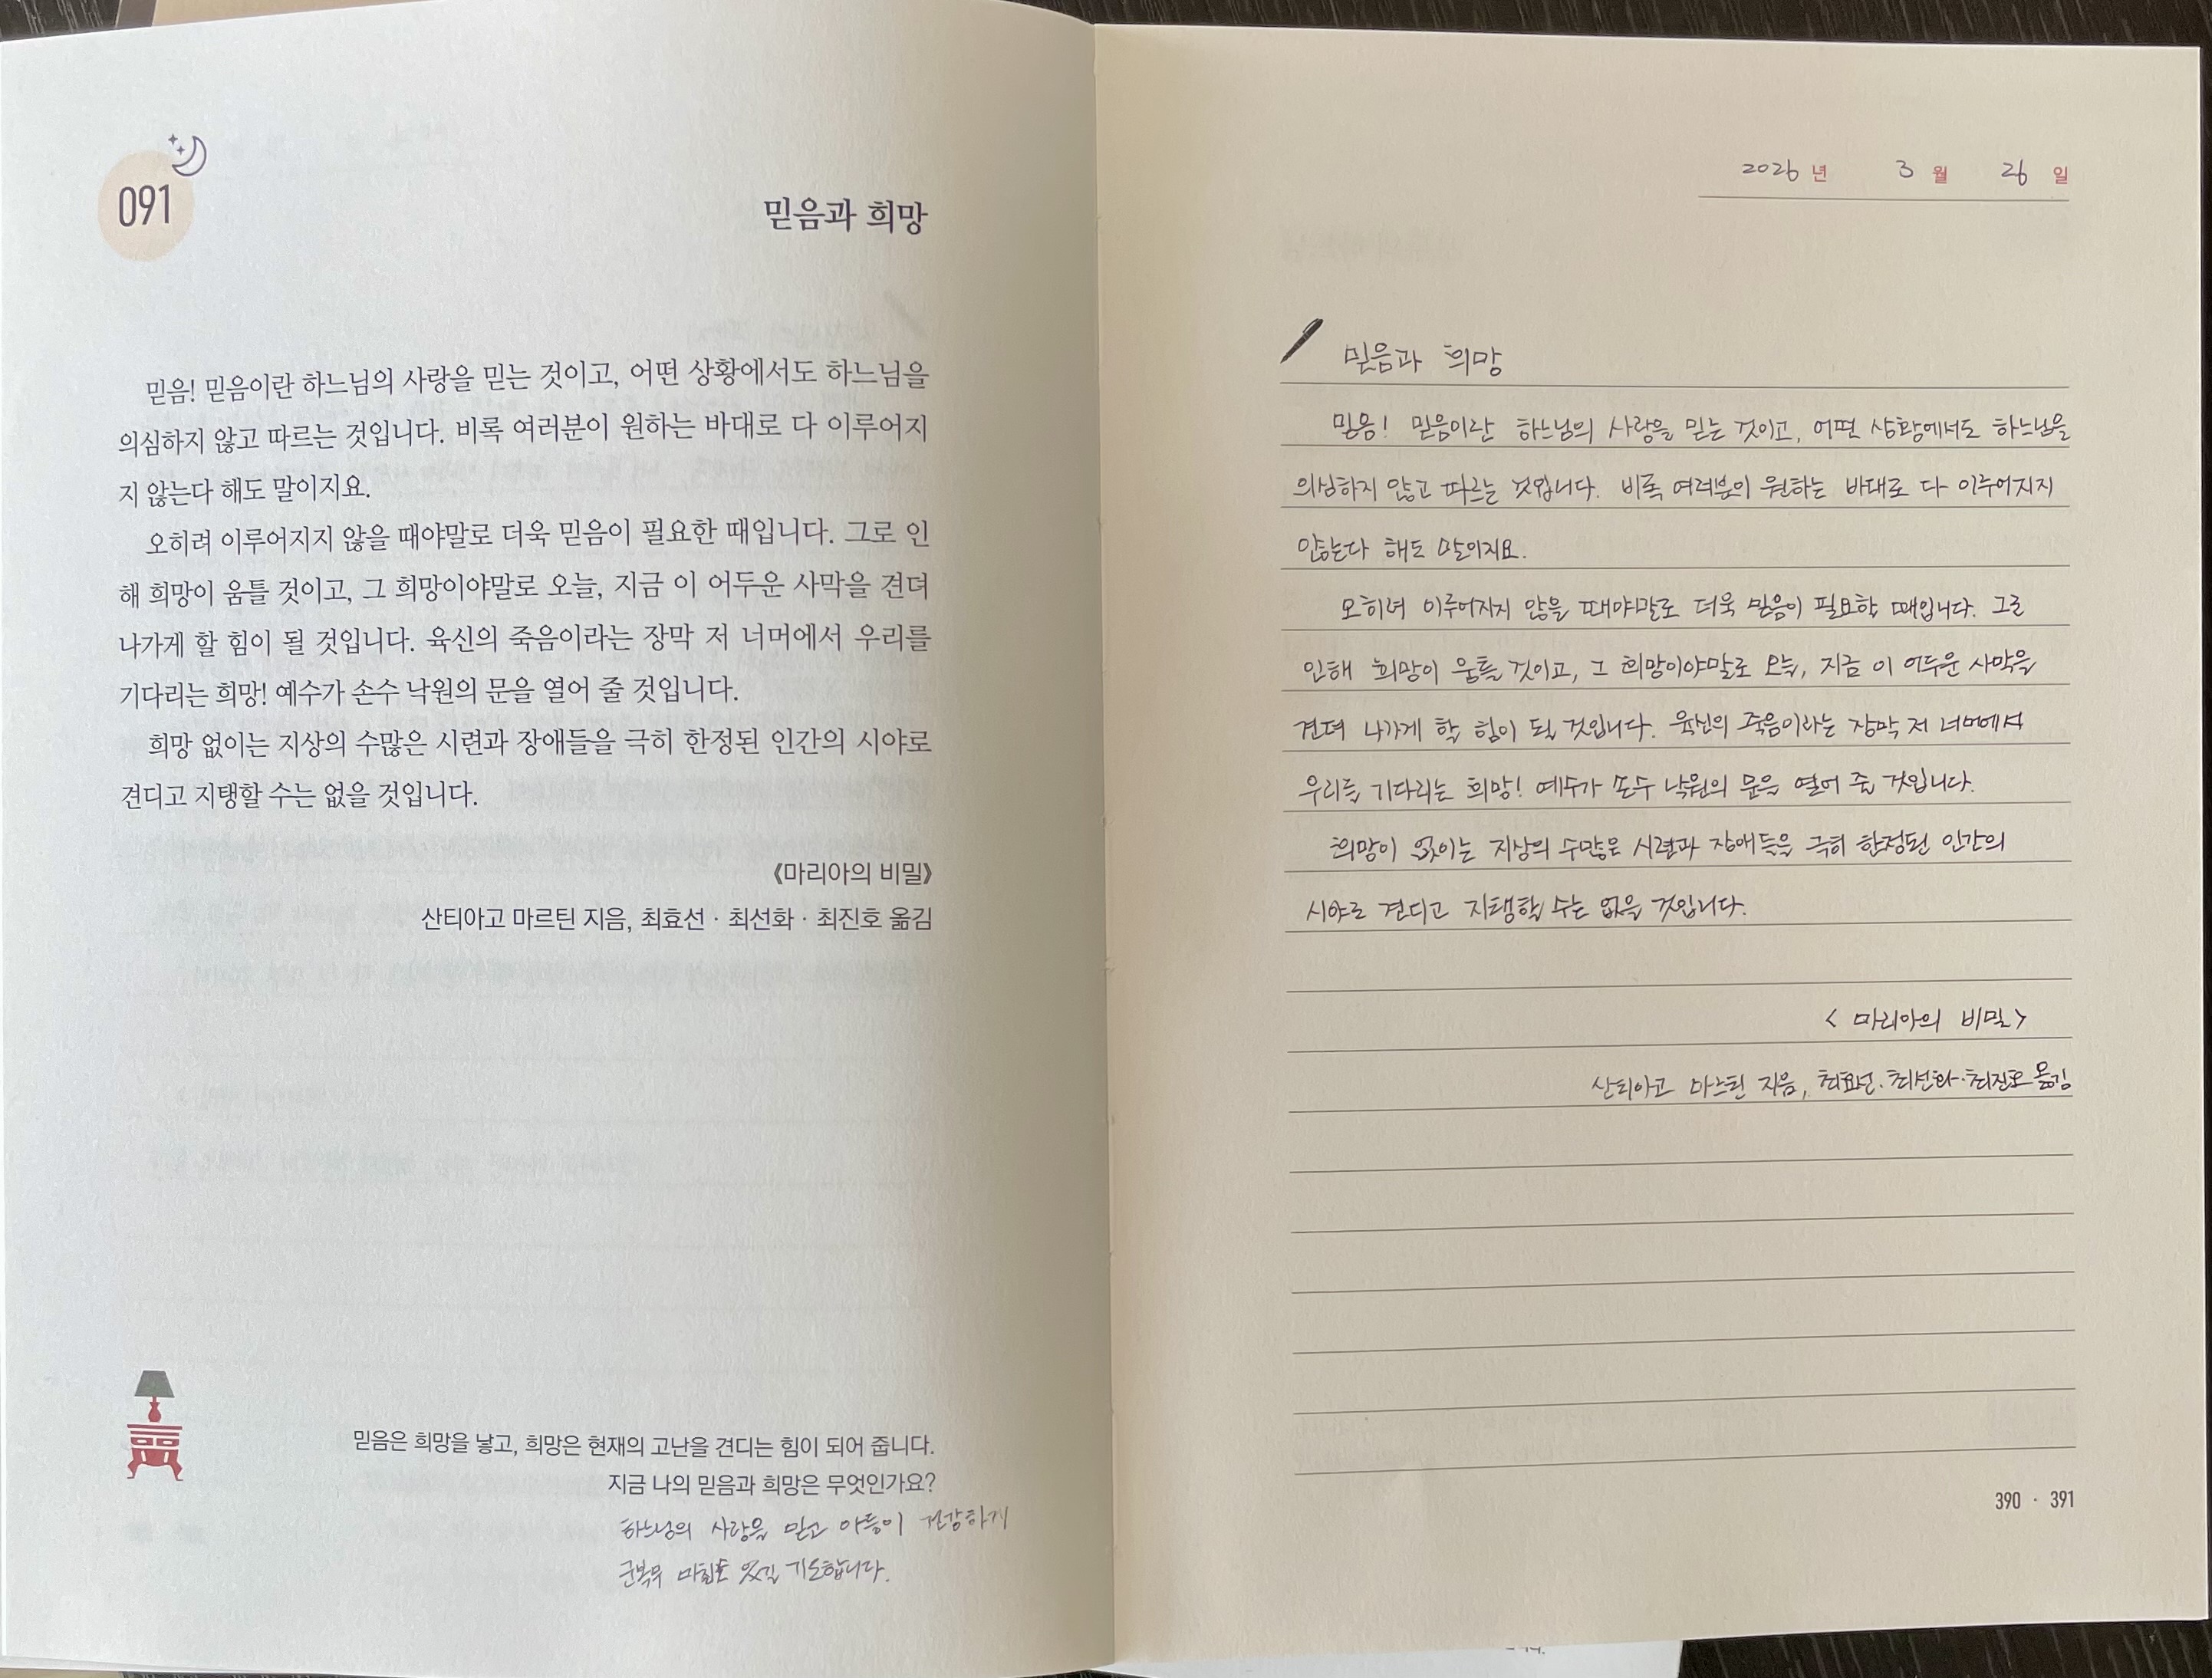 091
믿음과 희망
믿음! 믿음이란 하느님의 사랑을 믿는 것이고, 어떤 상황에서도 하느님을
의심하지 않고 따르는 것입니다. 비록 여러분이 원하는 바대로 다 이루어지
지 않는다 해도 말이지요.
오히려 이루어지지 않을 때야말로 더욱 믿음이 필요한 때입니다. 그로 인
해 희망이 움틀 것이고, 그 희망이야말로 오늘, 지금 이 어두운 사막을 견뎌
나가게 할 힘이 될 것입니다. 육신의 죽음이라는 장막 저 너머에서 우리를
기다리는 희망! 예수가 손수 낙원의 문을 열어 줄 것입니다.
희망 없이는 지상의 수많은 시련과 장애들을 극히 한정된 인간의 시야로
견디고 지탱할 수는 없을 것입니다.
《마리아의 비밀》
산티아고 마르틴 지음, 최효선 · 최선화 · 최진호 옮김
믿음은 희망을 낳고, 희망은 현재의 고난을 견디는 힘이 되어 줍니다.
지금 나의 믿음과 희망은 무엇인가요?
하느님의 사랑을 믿고 아들이 건강하게
군복무 마칠 수 있길 기도합니다.
2026 년 3 월 26 일
믿음과 희망
믿음! 믿음이란 하느님의 사랑을 믿는 것이고, 어떤 상황에서도 하느님을
의심하지 않고 따르는 것입니다. 비록 여러분의 원하는 바대로 다 이루어지지
않는다 해도 말이지요.
오히려 이루어지지 않을 때야말로 더욱 믿음이 필요한 때입니다. 그로
인해 희망이 움틀 것이고, 그 희망이야말로 오늘, 지금 이 어두운 사막을
견뎌 나가게 할 힘이 될 것입니다. 육신의 죽음이라는 장막 저 너머에서
우리를 기다리는 희망! 예수가 손수 낙원의 문을 열어 줄 것입니다.
희망이 없이는 지상의 수많은 시련과 장애들을 극히 한정된 인간의
시야로 견디고 지탱할 수는 없을 것입니다.
< 마리아의 비밀 >
산티아고 마르틴 지음, 최효선 · 최선화 · 최진호 옮김
390 · 391